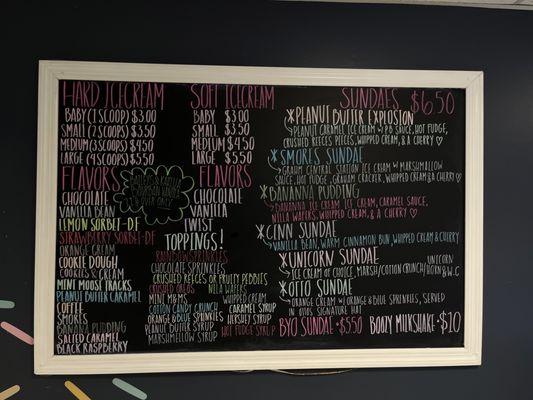 HARD ICECREAM
BABY (1 SCOOP) $3.00
SMALL (2 SCOOPS) $3.50
MEDIUM (3 SCOOPS) $4.50
LARGE (4 SCOOPS) $5.50
FLAVORS
CHOCOLATE
VANILLA BEAN
LEMON SORBET-DF
STRAWBERRY SORBET-DF
ORANGE CREAM
COOKIE DOUGH
COOKIES & CREAM
MINT MOOSE TRACKS
PEANUT BUTTER CARAMEL
COFFEE
SMORES
BANANA PUDDING
SALTED CARAMEL
BLACK RASPBERRY
& OVER ONLY
SOFT ICECREAM
BABY $3.00
SMALL $3.50
MEDIUM $4.50
LARGE $5.50
FLAVORS
CHOCOLATE
VANILLA
TWIST
TOPPINGS!
RAINBOW SPRINKLES
CHOCOLATE SPRINKLES
CRUSHED REECES OR FRUITY PEBBLES
CRUSHED OREOS NILLA WAFERS
MINI M&MS WHIPPED CREAM
COTTON CANDY CRUNCH CARAMEL SYRUP
ORANGE & BLUE SPRINKLES HERSHEY SYRUP
PEANUT BUTTER SYRUP HOT FUDGE SYRUP
MARSHMALLOW SYRUP
SUNDAES $6.50
*PEANUT BUTTER EXPLOSION
PEANUT CARAMEL ICE CREAM W/ P.B SAUCE, HOT FUDGE,
CRUSHED REECES PIECES, WHIPPED CREAM, & A CHERRY ♡
*SMORES SUNDAE
GRAHM CENTRAL STATION ICE CREAM W/ MARSHMALLOW
SAUCE, HOT FUDGE, GRAHAM CRACKER, WHIPPED CREAM & A CHERRY ♡
*BANANNA PUDDING
BANANNA ICE CREAM, CARAMEL SAUCE,
NILLA WAFERS, WHIPPED CREAM, & A CHERRY ♡
*CINN SUNDAE
VANILLA BEAN, WARM CINNAMON BUN, WHIPPED CREAM & CHERRY
*UNICORN SUNDAE
ICE CREAM OF CHOICE, MARSH/COTTON CRUNCH/UNICORN HORN & W.C
*OTTO SUNDAE
ORANGE CREAM W/ ORANGE & BLUE SPRINKLES, SERVED
IN OTTOS SIGNATURE HAT
BYO SUNDAE • $5.50 BOOZY MILKSHAKE • $10